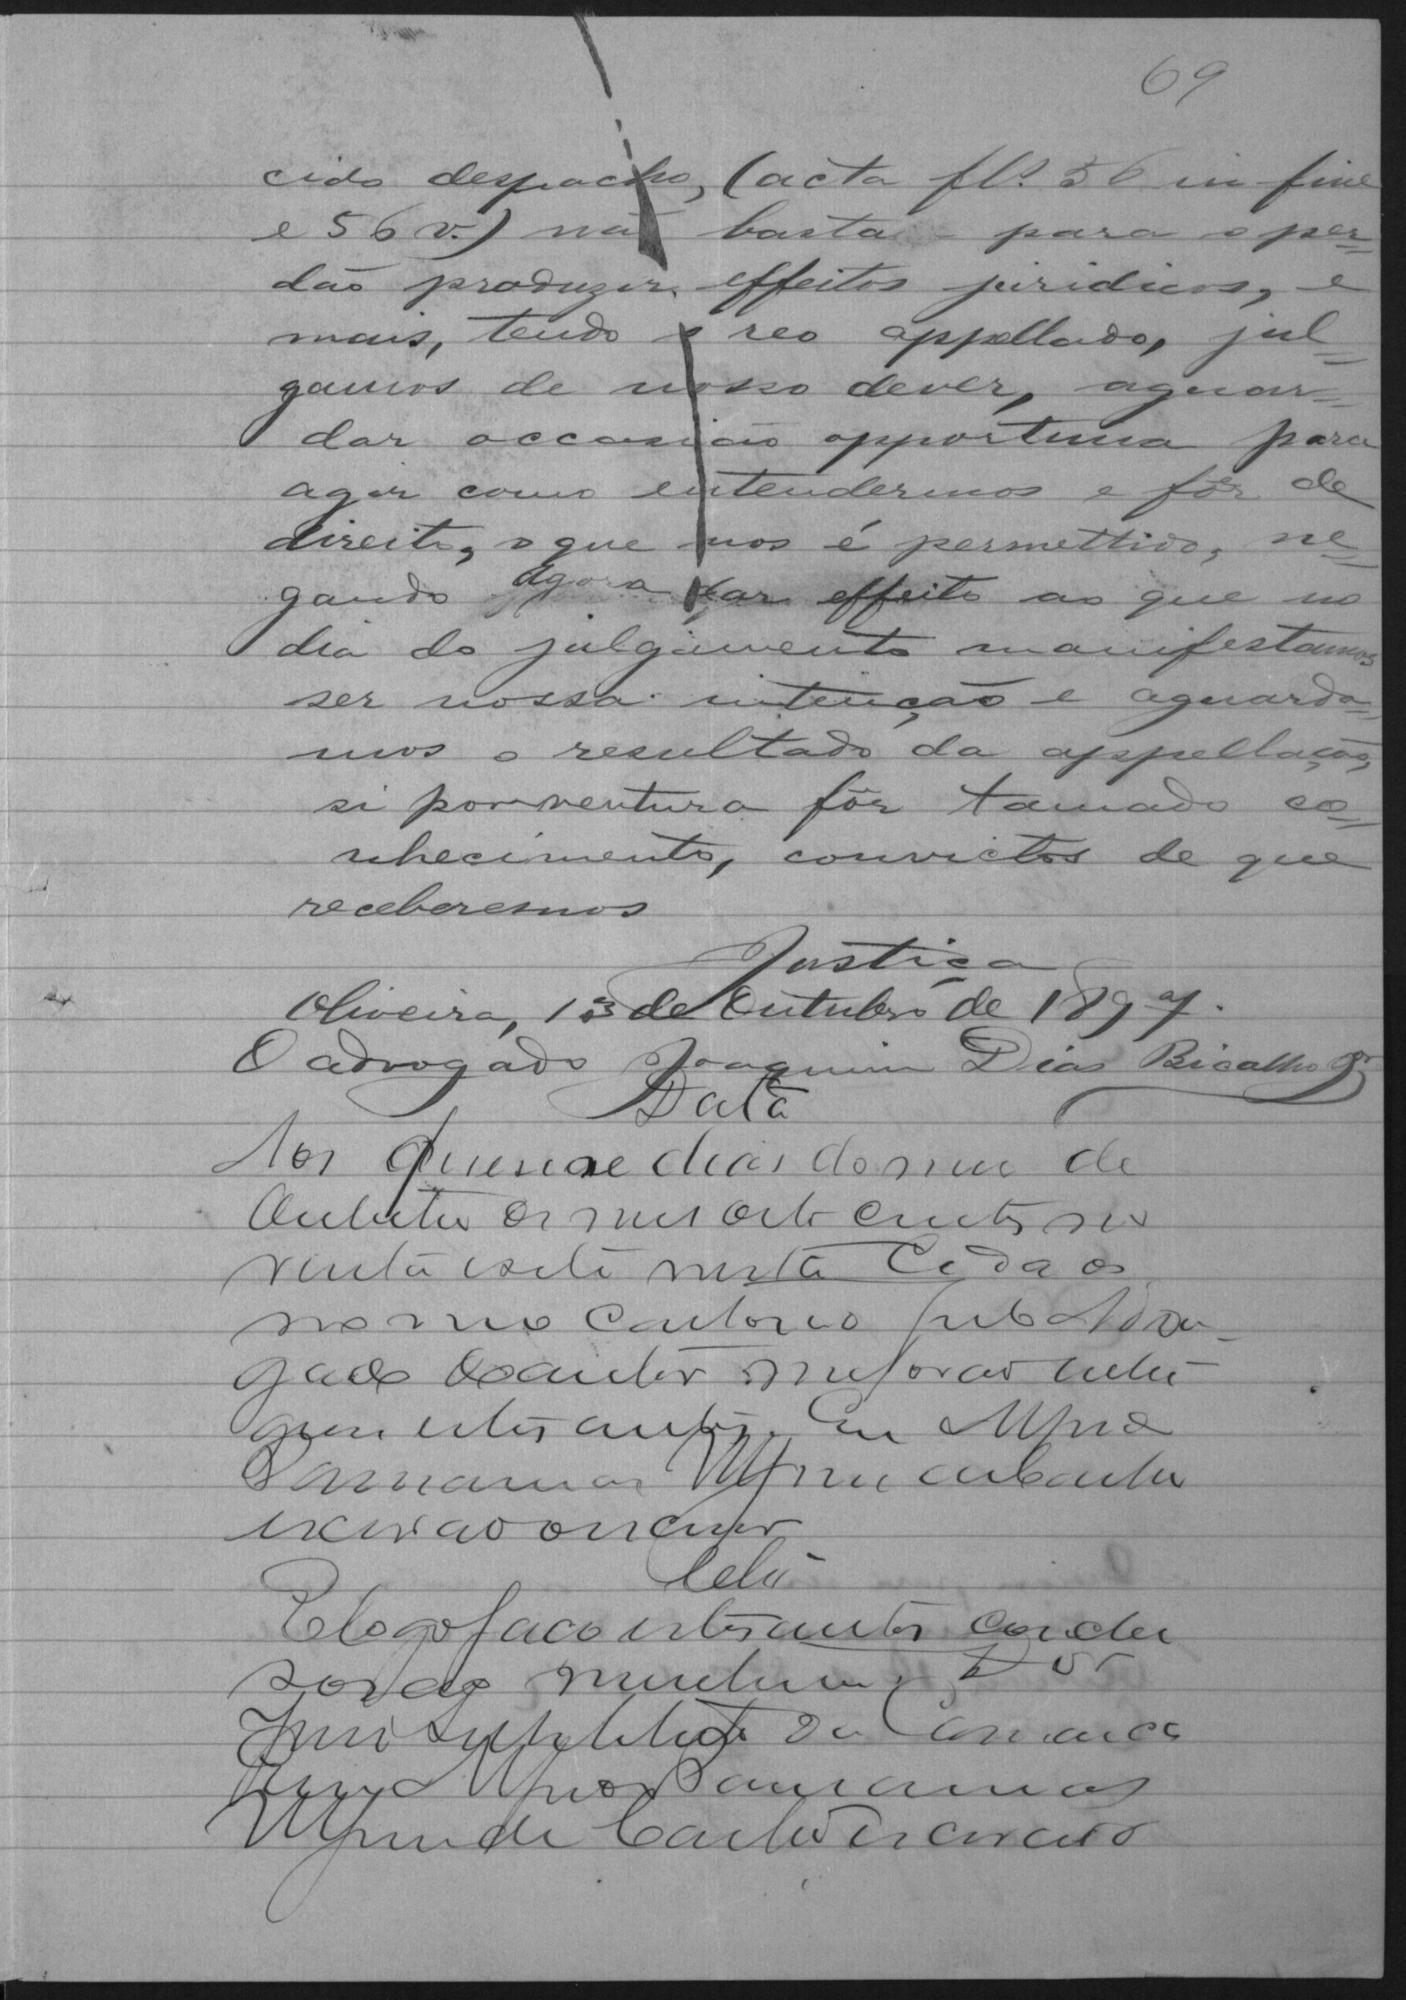 69
cido despacho, (acta fls. 56 in fine
e 56 v.) não basta para o per=
dão produzir effeitos juridicos, e
mais, tendo o reo appellado, jul=
gamos de nosso dever, aguar=
dar occasião opportuna para
agir como entendermos e fôr de
direito, o que nos é permettido, ne=
gando agora dar effeito ao que no
dia do julgamento manifestamos
ser nossa intenção e aguarda=
mos o resultado da appellação,
si porventura fôr tamado co=
nhecimento, convictos de que
receberemos
Justiça
Oliveira, 13 de Outubro de 1897.
O advogado Joaquim Dias Bicalho Jr.
Data
Aos quinse dias do mez de
Outubro de mil oito centos no
venta e sete nesta Cidade
no meo cartorio pelo Advo-
gado do autor me forao
estes autos. Eu
escrivão
E logo faço estes autos conclu
sos ao Dor
Juiz Substituto da Comarca
escrivão